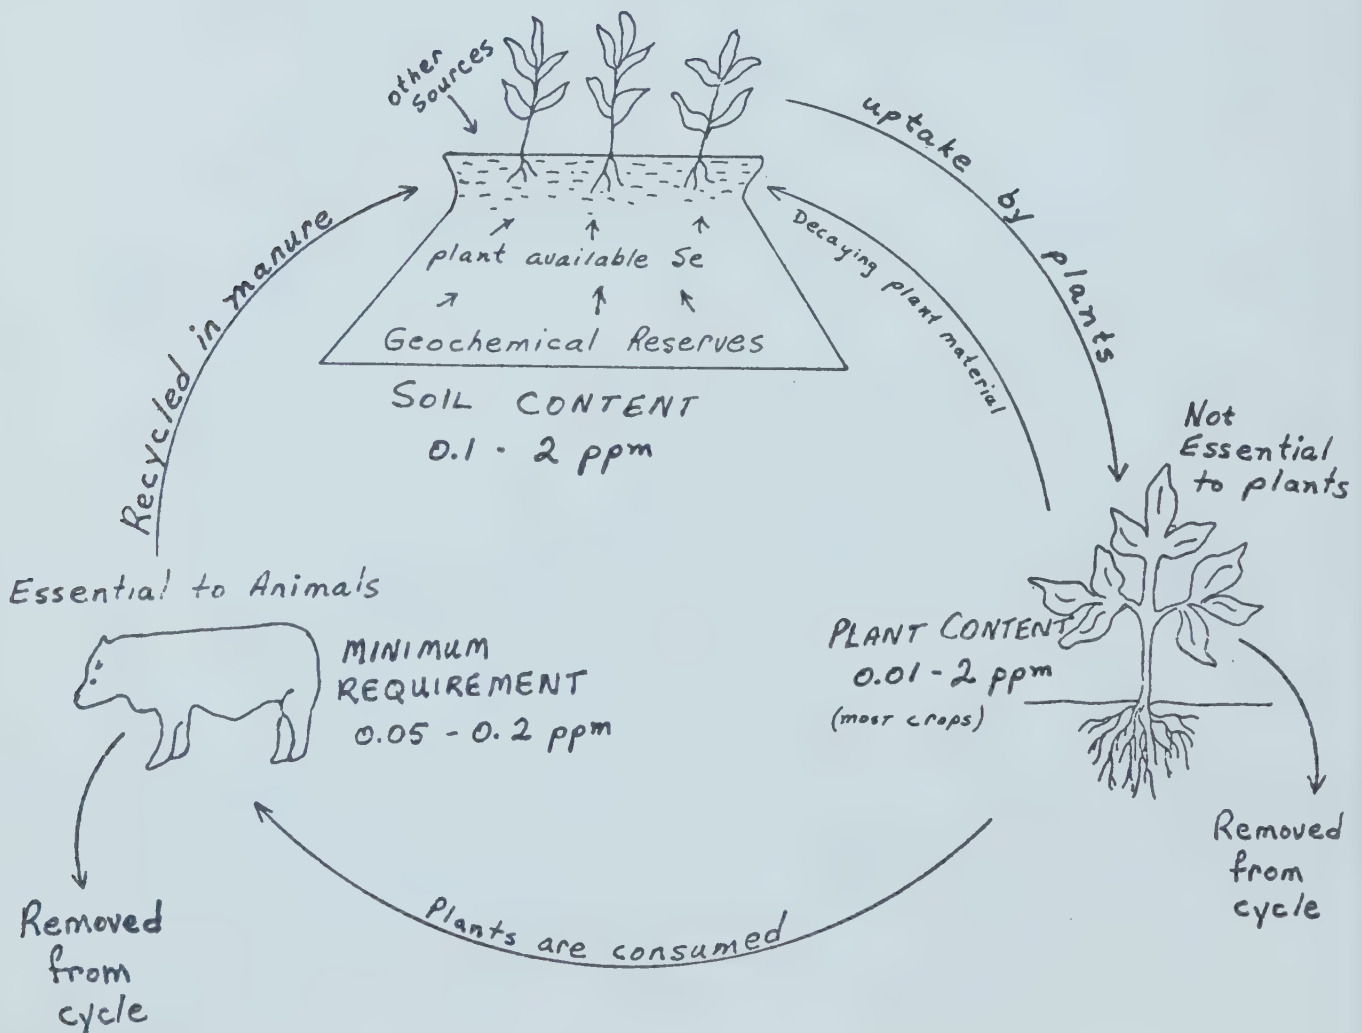 other
sources
uptake by plants
Recycled in manure
Decaying plant material
plant available Se
Geochemical Reserves
SOIL CONTENT
0.1 - 2 ppm
Not
Essential
to plants
Essential to Animals
MINIMUM
REQUIREMENT
0.05 - 0.2 ppm
PLANT CONTENT
0.01 - 2 ppm
(most crops)
Removed
from
cycle
Plants are consumed
Removed
from
cycle